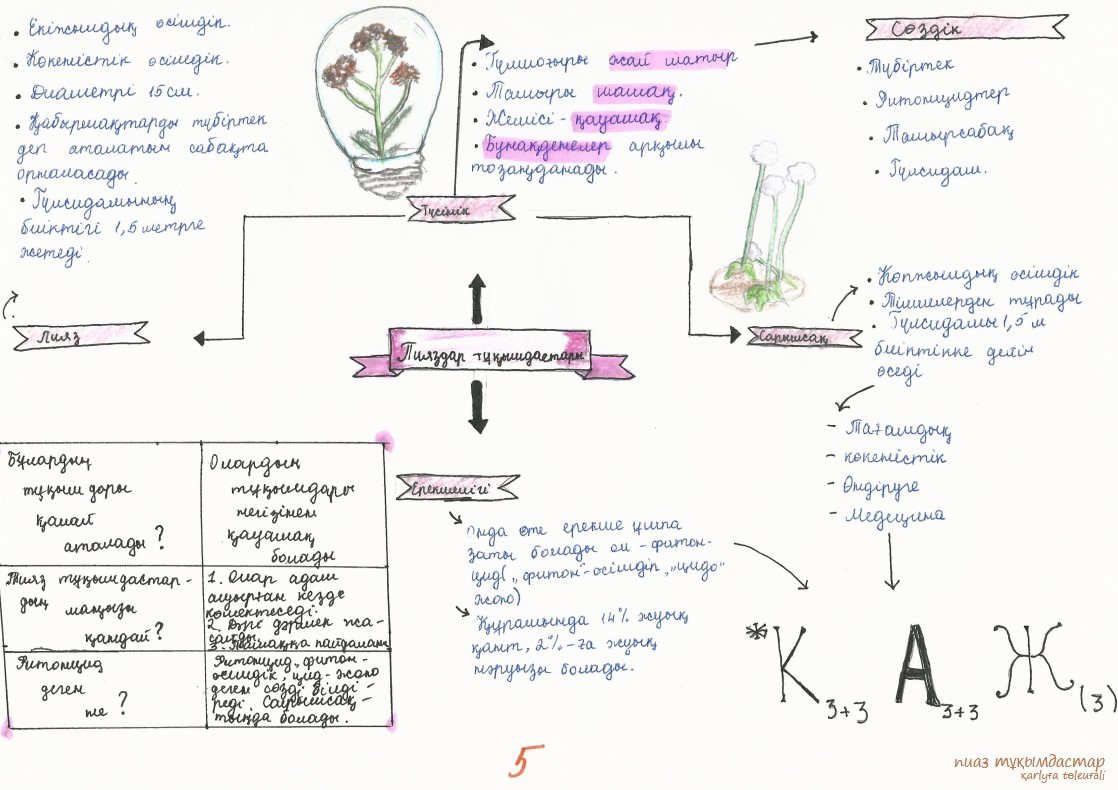 • Екіжылдық өсімдік.
• Көкөністік өсімдік.
• Диаметрі 15 см.
• Қабыршақтарды түбіртек
деп аталатын сабақта
орналасады.
• Гүлсидамының
биіктігі 1,5 метрге
жетеді.
• Гүлшоғыры жай шатыр
• Тамыры шашақ.
• Жемісі - қауашақ
• Бунақденелер арқылы
тозаңданады.
Сөздік
• Түбіртек
• Фитонцидтер
• Тамырсабақ
• Гүлсидам.
Түсінік
Пияз
Пияздар тұқымдастары
Сарымсақ
• Көпжылдық өсімдік
• Тілімшерден тұрады
• Гүлсидамы 1,5 м
биіктікке дейін
өседі
- Тағамдық
- көкөністік
- Өндіруге
- Медецина
Бұлардың
тұқымдары
қалай
аталады?
Олардың
тұқымдары
негізінен
қауашақ
болады
Пияз тұқымдастар-
дың маңызы
қандай?
1. Олар адам
ауырған кезде
көмектеседі.
2. Әрі дәрмек жа-
салды.
3. Тамаққа пайдалану
Фитонцид
деген
не?
Фитонцид „фитон-
өсімдік, цид-жою
деген сөзді білді-
реді. Сарымсақ-
тында болады.
Ерекшелігі
Онда өте ерекше ұшпа
заты болады ол - фитон-
цид( „фитон"-өсімдік „цидо"
жою)
Құрамында 14% жуық
қант, 2%-ға жуық
нәруызы болады.
* К 3+3 А 3+3 Ж (3)
5
пиаз тұқымдастар
қarlyға төleuғali